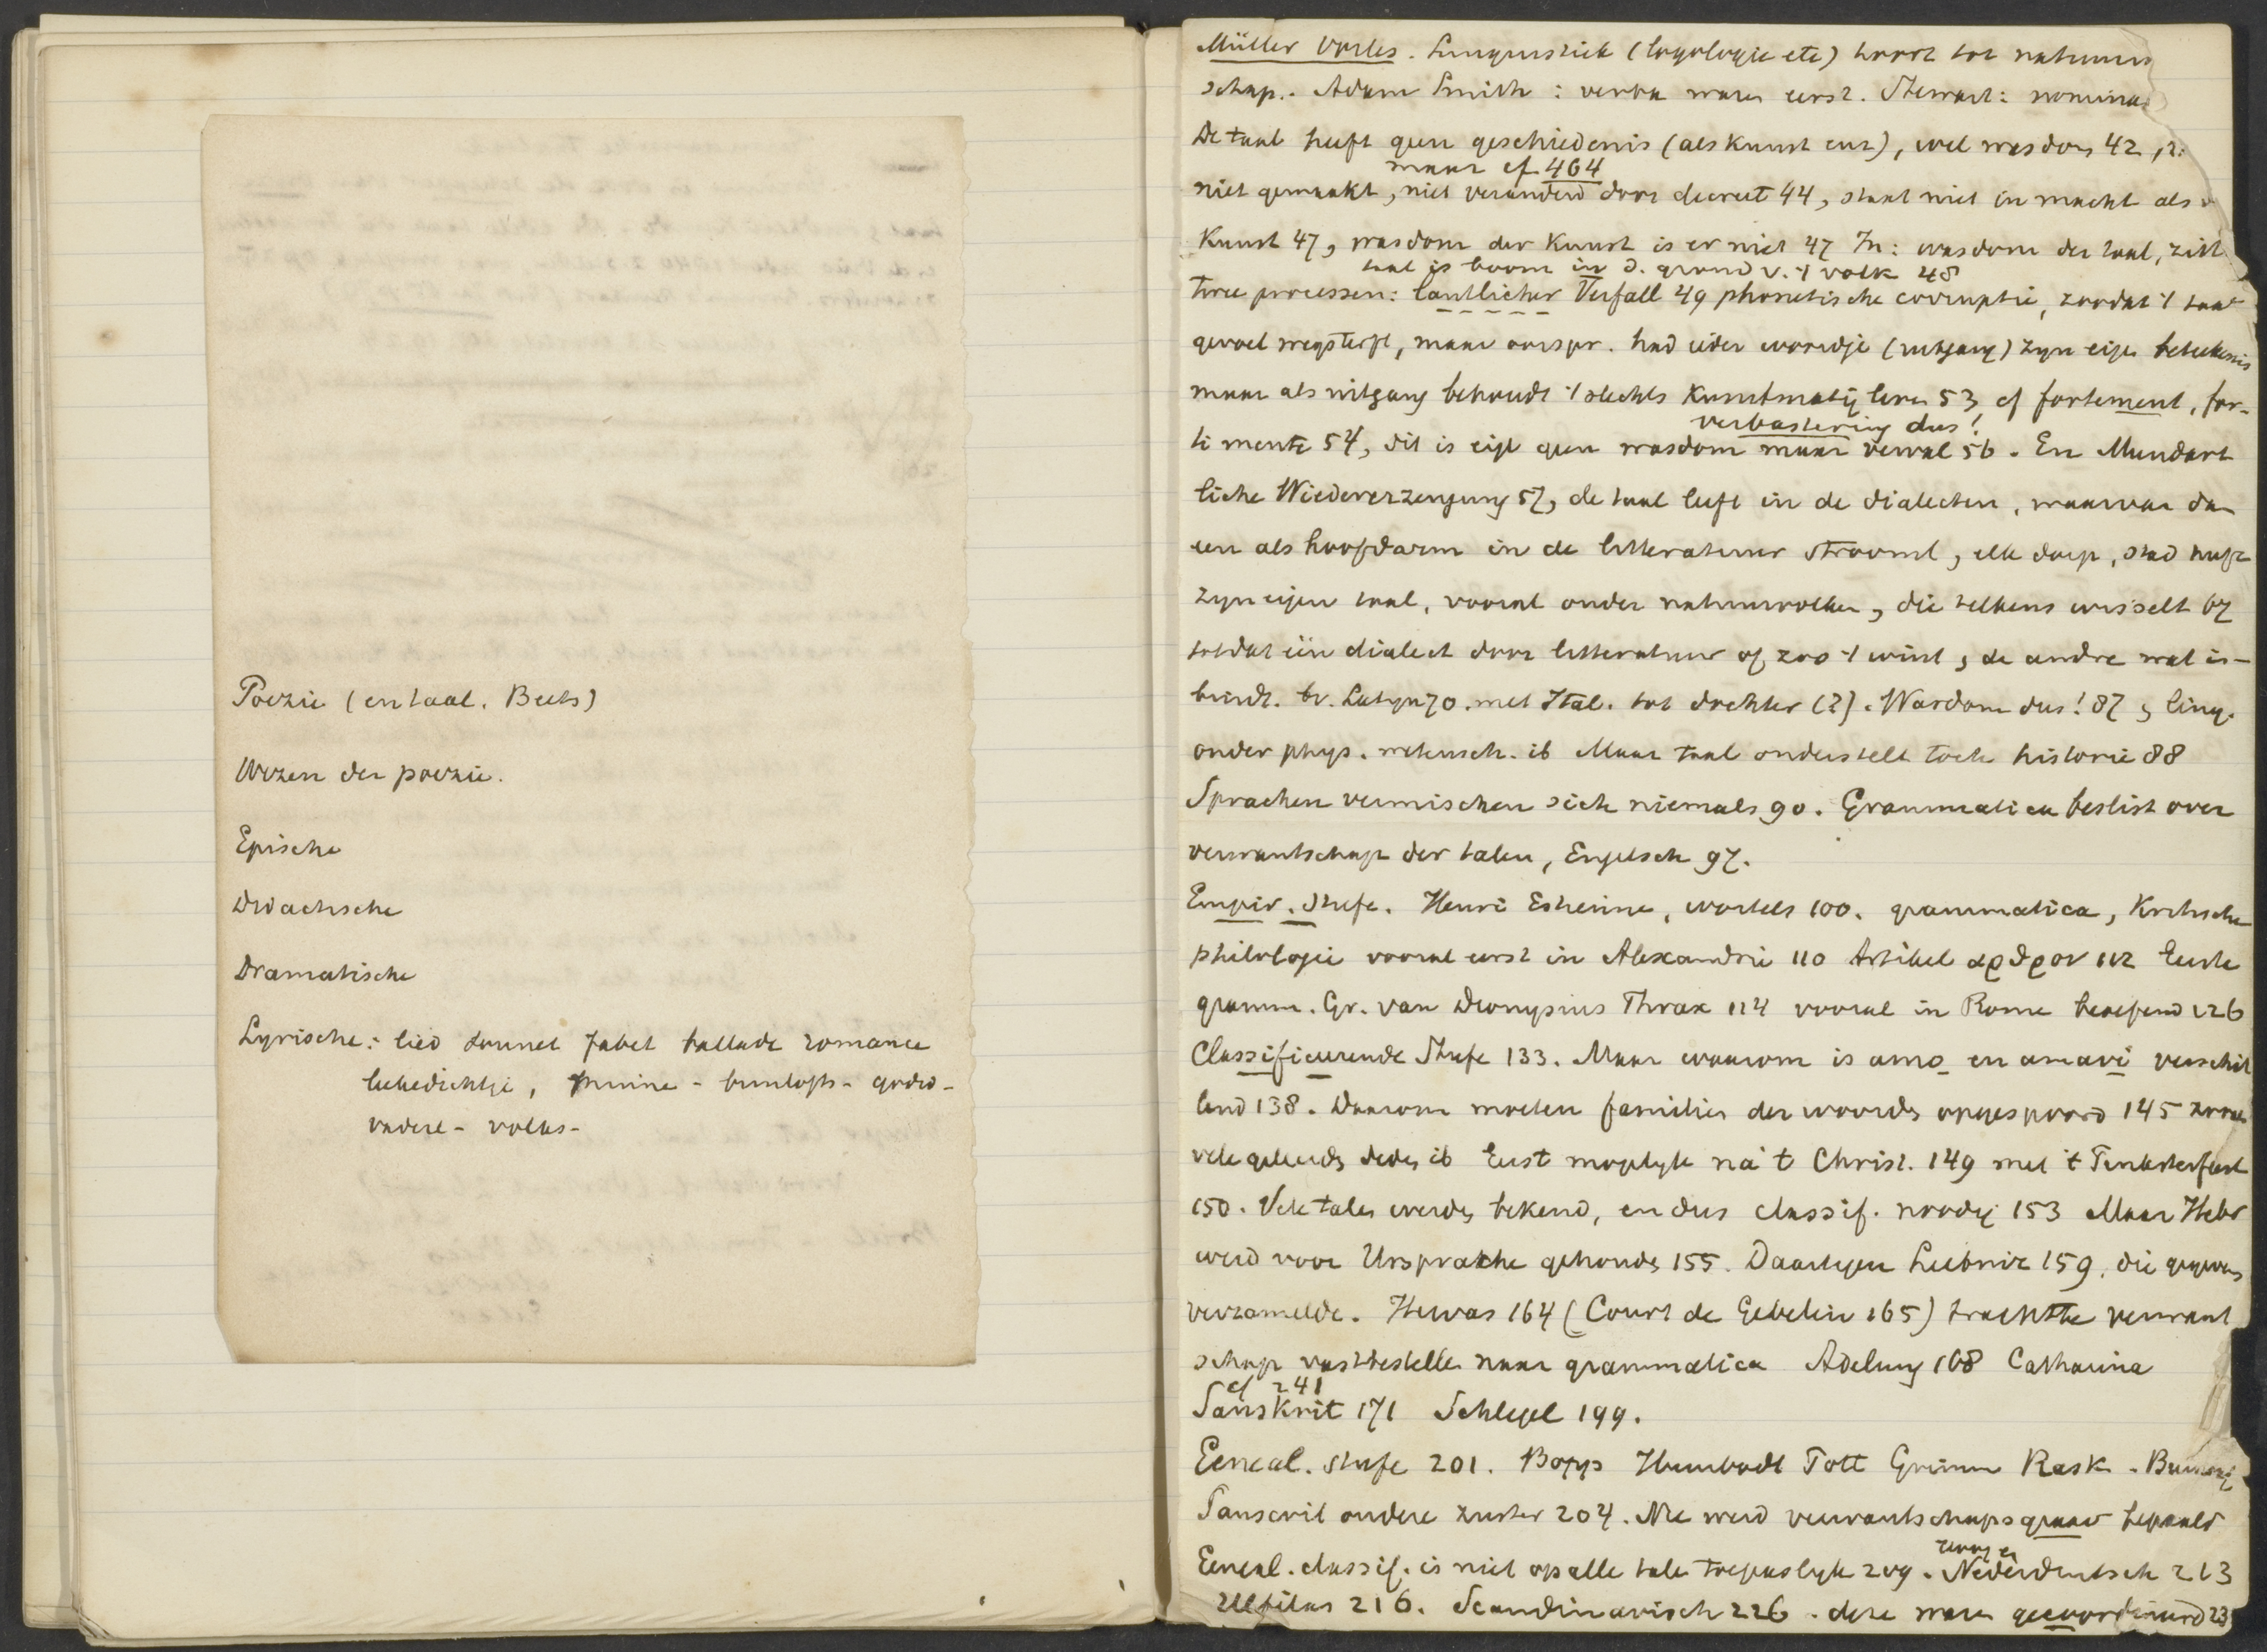 Poezie (en taal. Beets)
Wezen der poezie.
Epische
Didactische
Dramatische
Lyrische: lied sonnet fabel ballade romance
liefedichtje, minne - bruilofts - gods -
vaderl - volks -
Müller Vorles. Linguistiek (logologie etc) hoort tot natuurw
schap. Adam Smith: verba waren eerst. Stewart: nomina
De taal heeft geen geschiedenis (als kunst enz), wel wasdom 42,
maar cf 464
niet gemaakt, niet veranderd door decreet 44, staat niet in macht als
Kunst 47, wasdom der Kunst is er niet 47 In: wasdom der taal, zitt
taal is boom in d. grond v. 't volk 48
twee processen: lautlicher Verfall 49 phonetische corruptie, zoodat 't taal
gevoel wegsterft, maar oorspr. had ieder woordje (uitgang) zyn eigen beteekenis
maar als uitgang behoudt 't slechts kunstmatig leven 53, cf fortement, for-
verbastering dus!
ti mente 54, dit is eigl geen wasdom maar verval 56. En Mundart
liche Wiedererzeugung 57, de taal leeft in de dialecten, waarvan dan
een als hoofdarm in de litteratuur stroomt, elk dorp, stad heeft
zyn eigen taal, vooral onder natuurvolken, die telkens wisselt 67
totdat één dialect door litteratuur of zoo 't wint, de andre wat in-
bindt. bv. Latyn 70. met Ital. tot dochter (?). Wasdom dus! 87, ling.
onder phys. wetensch. ib Maar taal onderstelt toch historie 88
Sprachen vermischen sich niemals 90. Grammatica beslist over
verwantschap der talen, Engelsch 97.
Empir. Stufe. Henri Estienne, wortels 100. grammatica, Kritische
philologie vooral eerst in Alexandrië 110 Artikel αρθρον 112 Eerste
gramm. Gr. van Dionysius Thrax 114 vooral in Rome beoefend 126
Classificeerende Stufe 133. Maar waarom is amo en amavi verschil
lend 138. Daarom moeten families der woorden opgespoord 145 zooals
vele geleerden deden ib Eerst mogelyk na 't Christ. 149 met 't Pinksterfeest
150. Vele talen werden bekend, en dus classif. noodig 153 Maar Hebr
werd voor Ursprache gehouden 155. Daartegen Leibniz 159, die gegevens
verzamelde. Hervas 164 (Court de Gebelin 165) trachtte verwant
schap vasttestellen naar grammatica Adelung 168 Catharina
cf 241
Sanskrit 171 Schlegel 199.
Geneal. stufe 201. Bopp Humbodt Pott Grimm Rask.
Sanscrit oudere zuster 204. Nu werd verwantschapsgraad bepaald
Geneal. classif. is niet op alle talen toepaslyk 209. Nederduitsch 213
Ulfilas 216. Scandinavisch 226. deze waren gecoordineerd 23